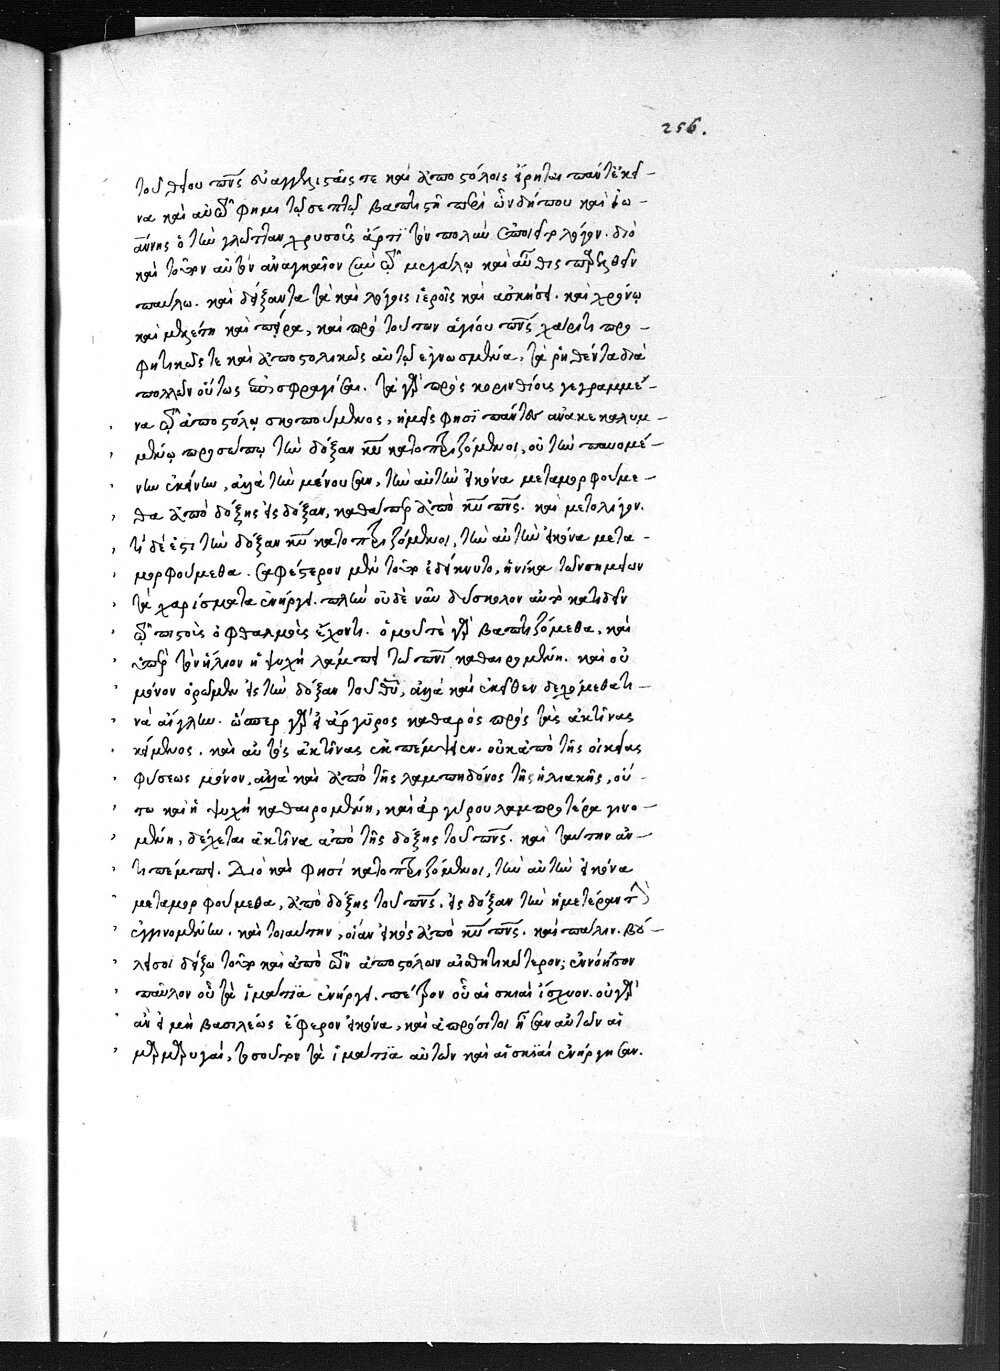 256.
τοῦ θείου πνς εὐαγγελισταῖς τε καὶ ἀποστόλοις εἴρηται πάντ' ἐκεῖ-
να καὶ αὐ τῶ φημι τῷ σεπτῷ βαπτιστῆ περὶ ὧν δήπου καὶ ἰω-
άννης ὁ τὴν γλῶτταν χρυσοῦς ἄρτι τὸν πολὺν ἐποίει λόγον. διὸ
καὶ τοῦτον αὐτὸν ἀναγκαῖον σὺν τῶ μεγάλω καὶ αὖθις παρελθεῖν
παύλω. καὶ δείξαντα τὰ καὶ λόγοις ἱεροῖς καὶ ἀσκήσει. καὶ χρόνῳ
καὶ μελέτη καὶ πείρα, καὶ πρό τούτων ἁγίου πνς χάριτι προ-
φητικῶς τε καὶ ἀποστολικῶς αὐτῷ ἐγνωσμένα, τὰ ῥηθέντα διὰ
πολλῶν οὕτως ἐπισφραγίσαι. τὰ γὰρ πρὸς κορινθίους γεγραμμέ-
να τῶ ἀποστόλῳ σκοπούμενος, ἡμεῖς φησὶ πάντες ἀνακεκαλυμ-
μένῳ προσώπῳ τὴν δόξαν κυ κατοπτριζόμενοι, οὐ τὴν παυομέ-
νην ἐκείνην, ἀλλὰ τὴν μένουσαν, τὴν αὐτὴν εἰκόνα μεταμορφούμε-
θα ἀπὸ δόξης εἰς δόξαν, καθάπερ ἀπὸ κυ πνς. καὶ μετολίγον.
τί δέ ἐστι τὴν δόξαν κυ κατοπτριζόμενοι, τὴν αὐτὴν εἰκόνα μετα-
μορφούμεθα. σαφέστερον μὲν τοῦτο ἐδείκνυτο, ἡνίκα τῶν σημείων
τὰ χαρίσματα ἐνήργει. πλὴν οὐδὲ νῦν δύσκολον αὐτὸ κατιδεῖν
τῶ πιστοὺς ὀφθαλμοὺς ἔχοντι. ὁμοῦ τε γὰρ βαπτιζόμεθα, καὶ
ὑπὲρ τὸν ἥλιον ἡ ψυχὴ λάμπει τῶ πνι καθαιρομένη. καὶ οὐ
μόνον ὁρῶμεν εἰς τὴν δόξαν τοῦ θυ, ἀλλὰ καὶ ἐκεῖθεν δεχόμεθά τι-
νὰ αἴγλην. ὥσπερ γὰρ εἰ ἄργυρος καθαρός πρὸς τὰς ἀκτῖνας
κείμενος. καὶ αὐτὸς ἀκτῖνας ἐκπέμψειεν. οὐκ ἀπὸ τῆς οἰκείας
φύσεως μόνον, ἀλλὰ καὶ ἀπὸ τῆς λαμπηδόνος τῆς ἡλιακῆς, οὕ-
τω καὶ ἡ ψυχὴ καθαιρομένη, καὶ ἀργύρου λαμπροτέρα γινο-
μένη, δέχεται ἀκτῖνα ἀπὸ τῆς δόξης τοῦ πνς. καὶ ταύτην ἀν-
τιπέμπει. Διὸ καὶ φησὶ κατοπτριζόμενοι, τὴν αὐτὴν εἰκόνα
μεταμορφούμεθα, ἀπὸ δόξης τοῦ πνς. εἰς δόξαν τὴν ἡμετέραν τὴν
ἐγγινομένην. καὶ τοιαύτην, οἵαν εἰκὸς ἀπὸ κυ πνς. καὶ πάλιν. βού-
λει σοι δείξω τοῦτο καὶ ἀπὸ τῶν ἀποστόλων αἰσθητικώτερον; ἐννόησον
παῦλον οὗ τὰ ἱμάτια ἐνήργει. πέτρον οὗ αἱ σκιαὶ ἴσχυον. οὐ γὰρ
ἂν εἰ μὴ βασιλέως ἔφερον εἰκόνα, καὶ ἀπρόσιτοι ἦσαν αὐτῶν αἱ
μαρμαρυγαί, τοσοῦτον τὰ ἱμάτια αὐτῶν καὶ αἱ σκιαί ἐνήργησαν.